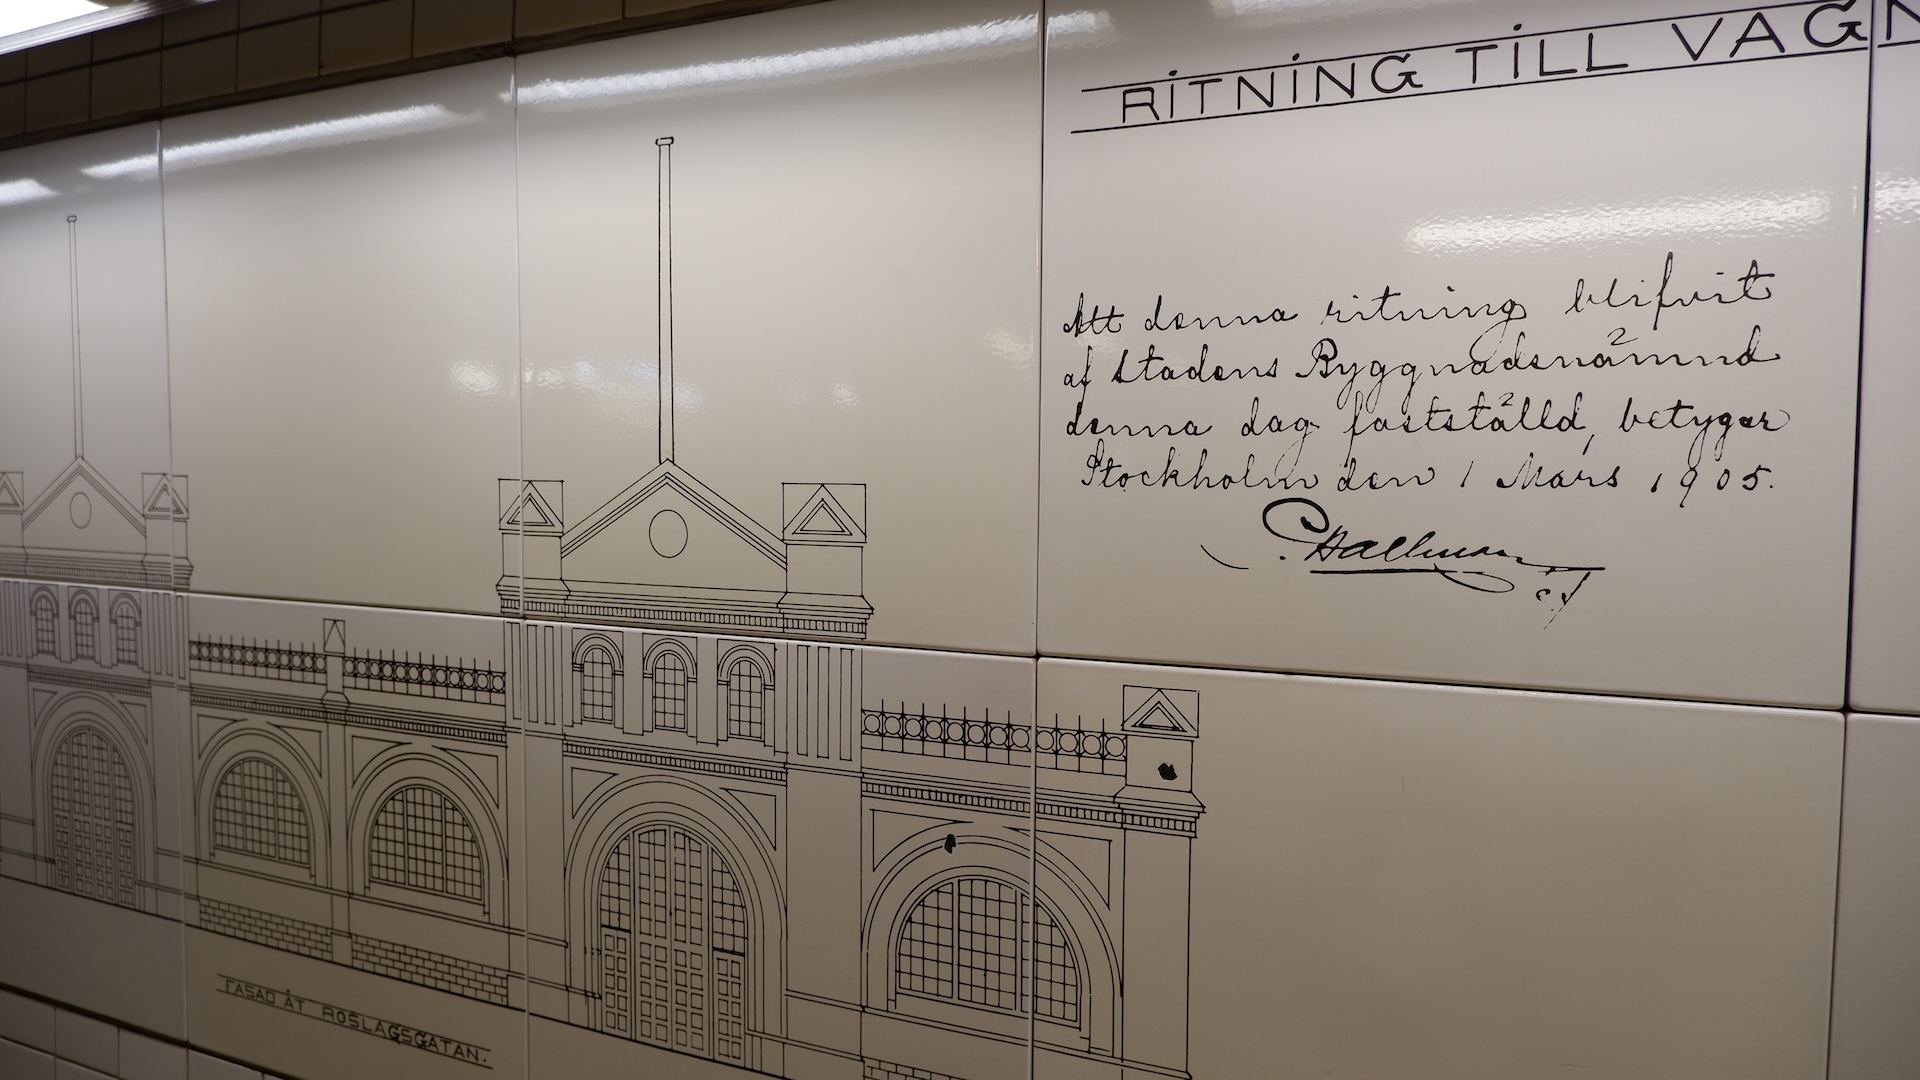 RITNING TILL VAGN
Att denna ritning blifvit
af Stadens Byggnadsnämnd
denna dag fastställd, betygar
Stockholm den 1 Mars 1905.
P. Hallman
FASAD ÅT ROSLAGSGATAN.